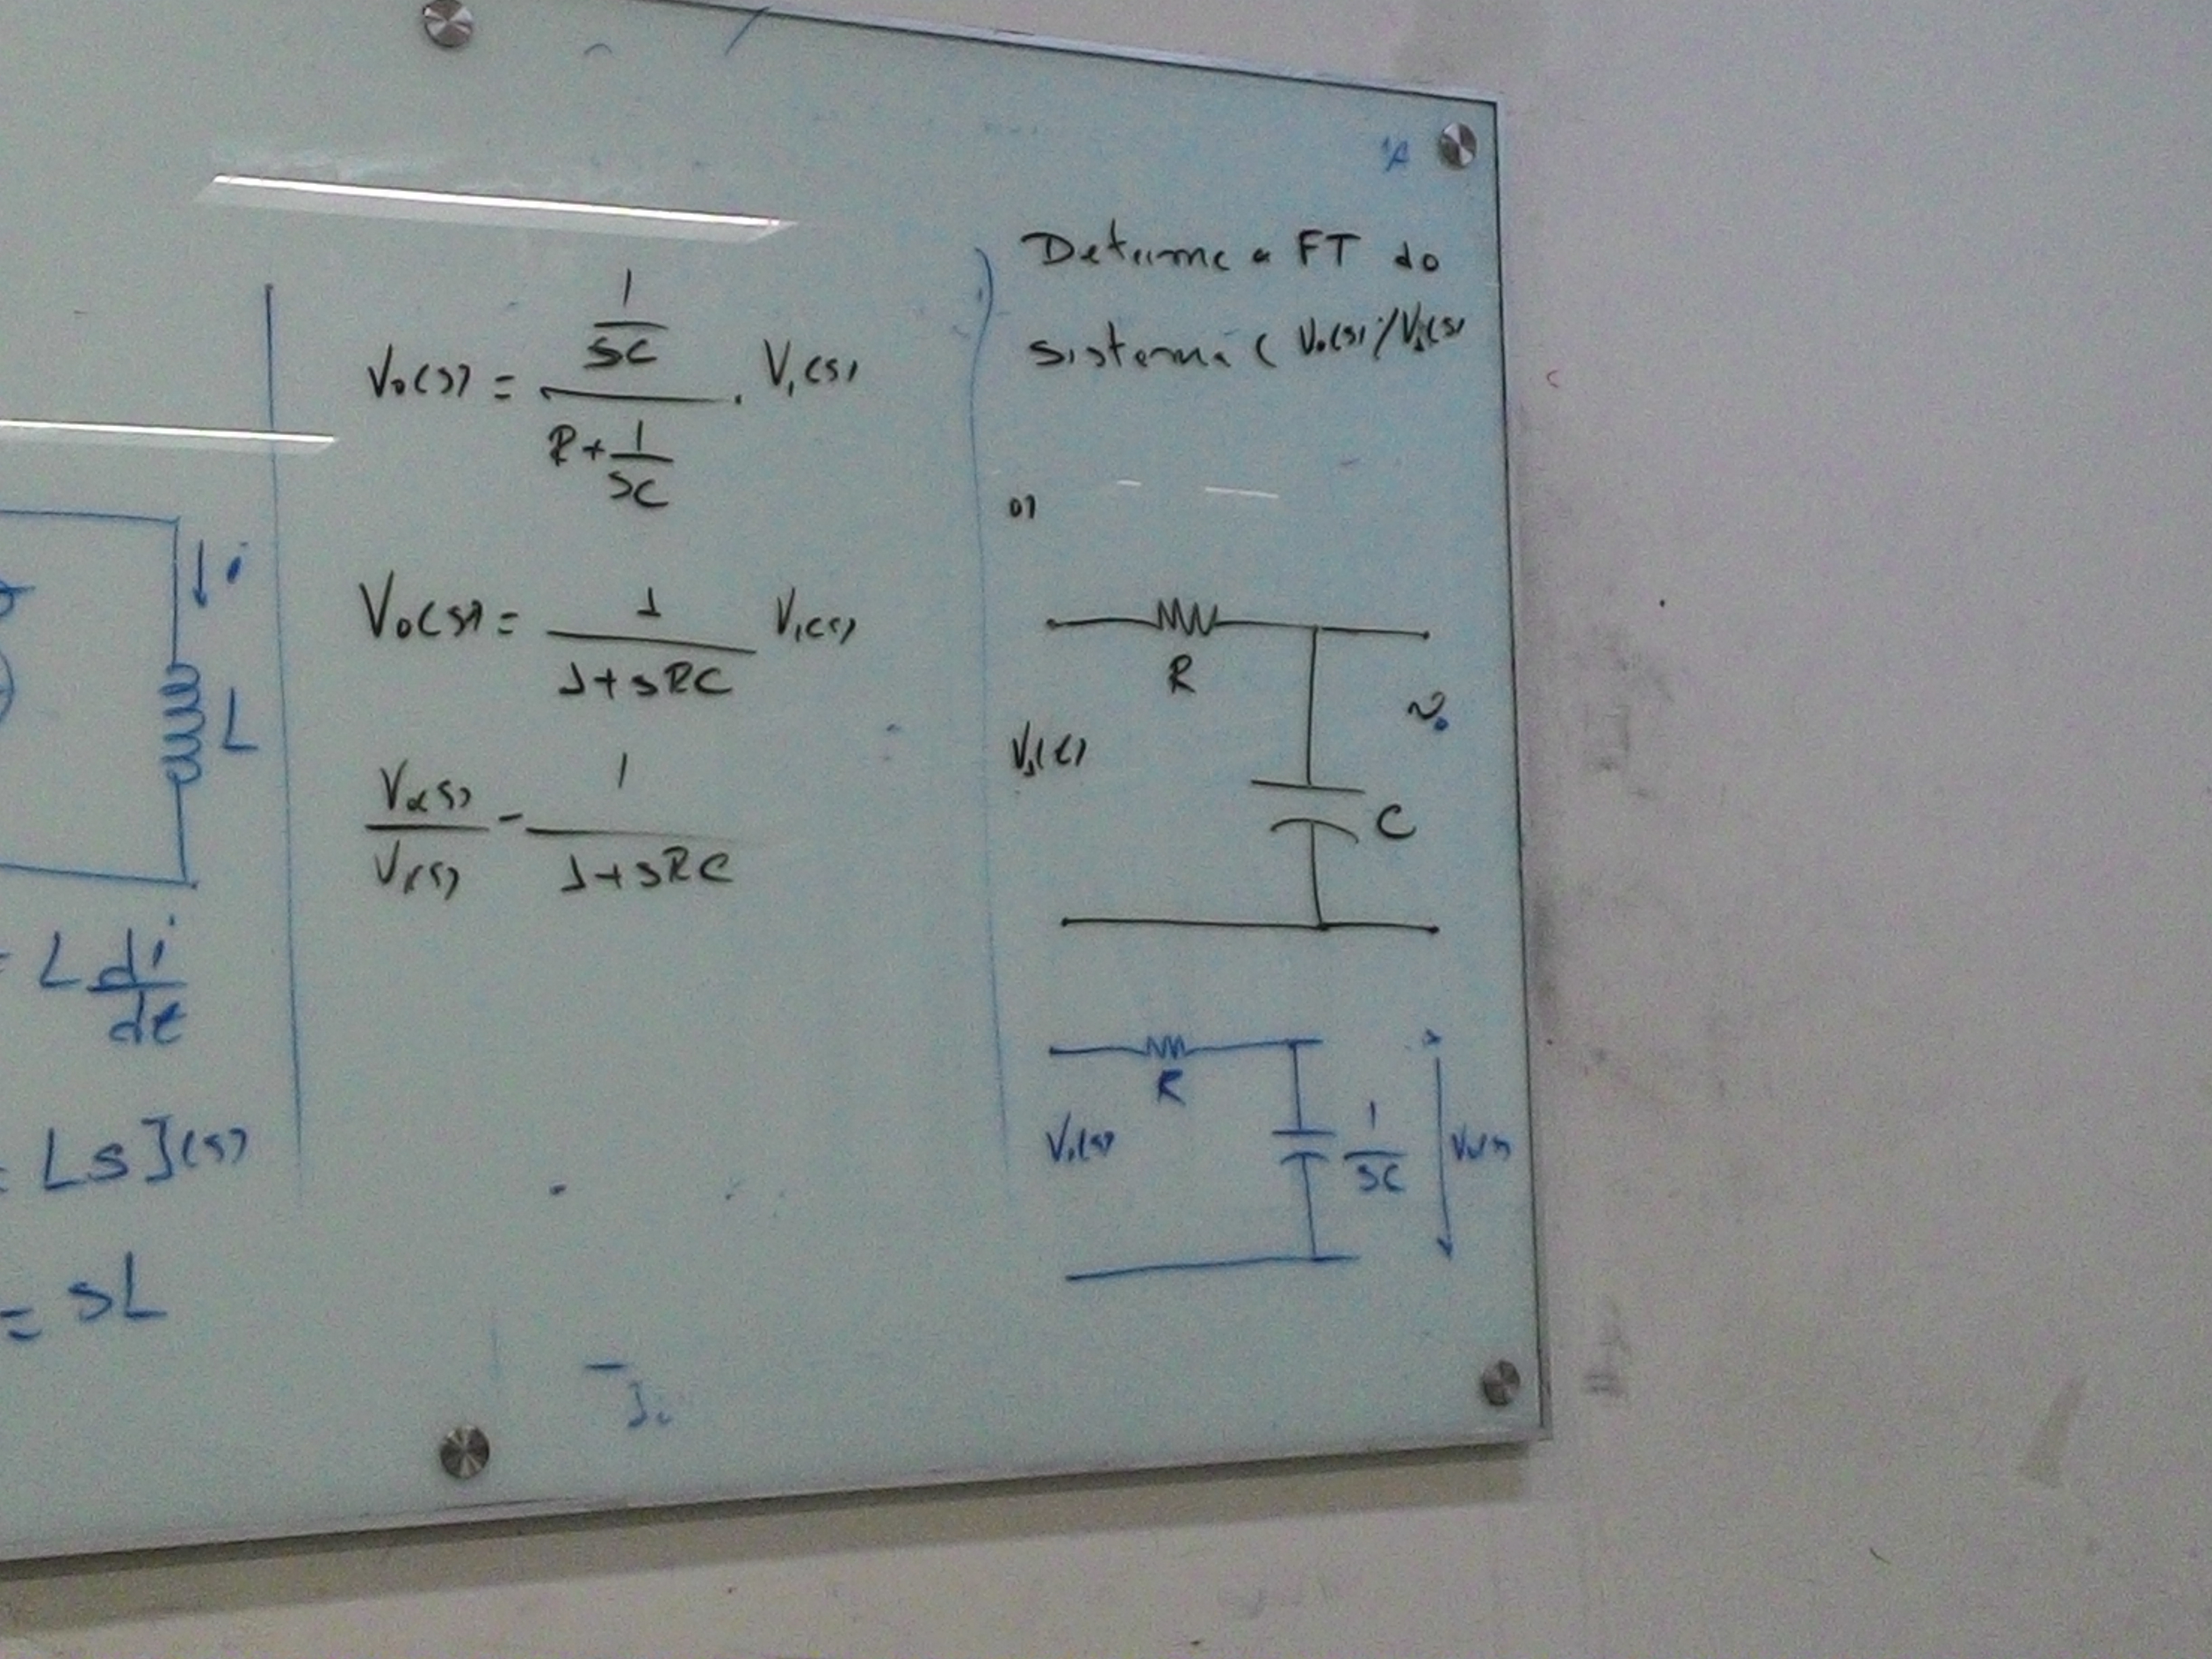 ↓ i
L
= L di/dt
= LsI(s)
= sL
Vo(s) = (1/sC)/(R + 1/sC) . V1(s)
Vo(s) = 1/(1+sRC) V1(s)
Vo(s)/V1(s) = 1/(1+sRC)
Determine a FT do
sistema ( Vo(s)/V1(s)
a)
R
V1(t)
vo
C
R
V1(s)
1/sC
Vo(s)